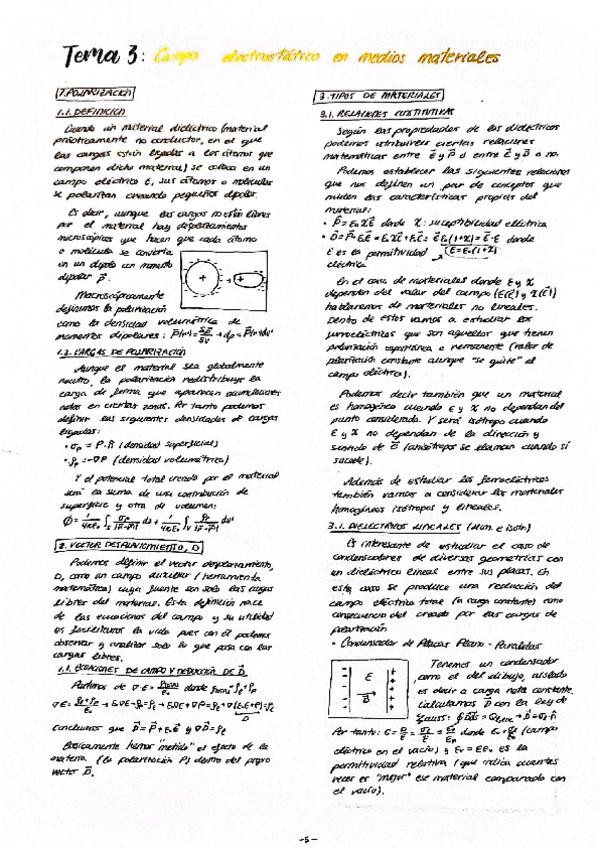 Tema 3: Campo electrostático en medios materiales
1. POLARIZACIÓN
1.1. DEFINICIÓN
Cuando un material dieléctrico (material
prácticamente no conductor, en el que
las cargas están ligadas a los átomos que
componen dicho material) se coloca en un
campo eléctrico E, sus átomos o moléculas
se polarizan creando pequeños dipolos.
Es decir, aunque las cargas no estén libres
por el material hay desplazamientos
microscópicos que hacen que cada átomo
o molécula se convierta
en un dipolo con momento
dipolar p⃗.
Macroscópicamente
definimos la polarización
como la densidad volumétrica de
momentos dipolares:
1.2. CARGAS DE POLARIZACIÓN
Aunque el material sea globalmente
neutro, la polarización redistribuye la
carga de forma que aparecen acumulaciones
netas en ciertas zonas. Por tanto podemos
definir las siguientes densidades de cargas
ligadas:
• σp = P⃗·n̂ (densidad superficial)
• ρp = -∇P (densidad volumétrica)
Y el potencial total creado por el material
será la suma de una contribución de
superficie y otra de volumen:
2. VECTOR DESPLAZAMIENTO, D
Podemos definir el vector desplazamiento,
D, como un campo auxiliar (herramienta
matemática) cuya fuente son solo las cargas
libres del material. Esta definición nace
de las ecuaciones del campo y su utilidad
es facilitarnos la vida pues con él podemos
observar y analizar solo lo que pasa con las
cargas libres.
1.1. ECUACIONES DE CAMPO Y DEDUCCIÓN DE D⃗
Partimos de ∇·E= donde
Concluimos que D⃗=P⃗+E₀E⃗ y ∇D⃗=
Básicamente hemos "metido" el efecto de la
materia (la polarización P) dentro del propio
vector D⃗.
3. TIPOS DE MATERIALES
3.1. RELACIONES CONSTITUTIVAS
Según las propiedades de los dieléctricos
podemos atribuirles ciertas relaciones
matemáticas entre E⃗ y P⃗ o entre E⃗ y D⃗ o no.
Podemos establecer las siguientes relaciones
que nos definen un par de conceptos que
miden las características propias del
material:
• P⃗=E₀χE⃗ donde χ: susceptibilidad eléctrica
• D⃗=P⃗+E₀E⃗=E₀χE⃗+E₀E⃗=E⃗E₀(1+χ)=E·E⃗ donde
E es la permitividad (E=E₀(1+χ))
eléctrica
En el caso de materiales donde E y χ
dependen del valor del campo (E(E⃗) y χ(E⃗))
hablaremos de materiales no lineales.
Dentro de estos vamos a estudiar los
ferroeléctricos que son aquellos que tienen
polarización espontánea o remanente (valor de
polarización constante aunque "se quite" el
campo eléctrico).
Podemos decir también que un material
es homogéneo cuando E y χ no dependan del
punto considerado. Y será isótropo cuando
E y χ no dependan de la dirección y
sentido de E⃗ (anisótropos se llaman cuando sí
sucede).
Además de estudiar los ferroeléctricos
también vamos a considerar los materiales
homogéneos isótropos y lineales.
3.1. DIELÉCTRICOS LINEALES (Hom. e isótr.)
Es interesante de estudiar el caso de
condensadores de diversas geometrías con
un dieléctrico lineal entre sus placas. En
este caso se produce una reducción del
campo eléctrico total (a carga constante) como
consecuencia del creado por las cargas de
polarización
• Condensador de Placas Plano-Paralelas
E
D⃗
Tenemos un condensador
como el del dibujo, aislado
es decir a carga neta constante.
Calculamos D⃗ con la Ley de
Gauss:
Por tanto: donde (campo
eléctrico en el vacío) y es la
permitividad relativa (que indica cuantas
veces es "mejor" ese material comparado con
el vacío).
-5-